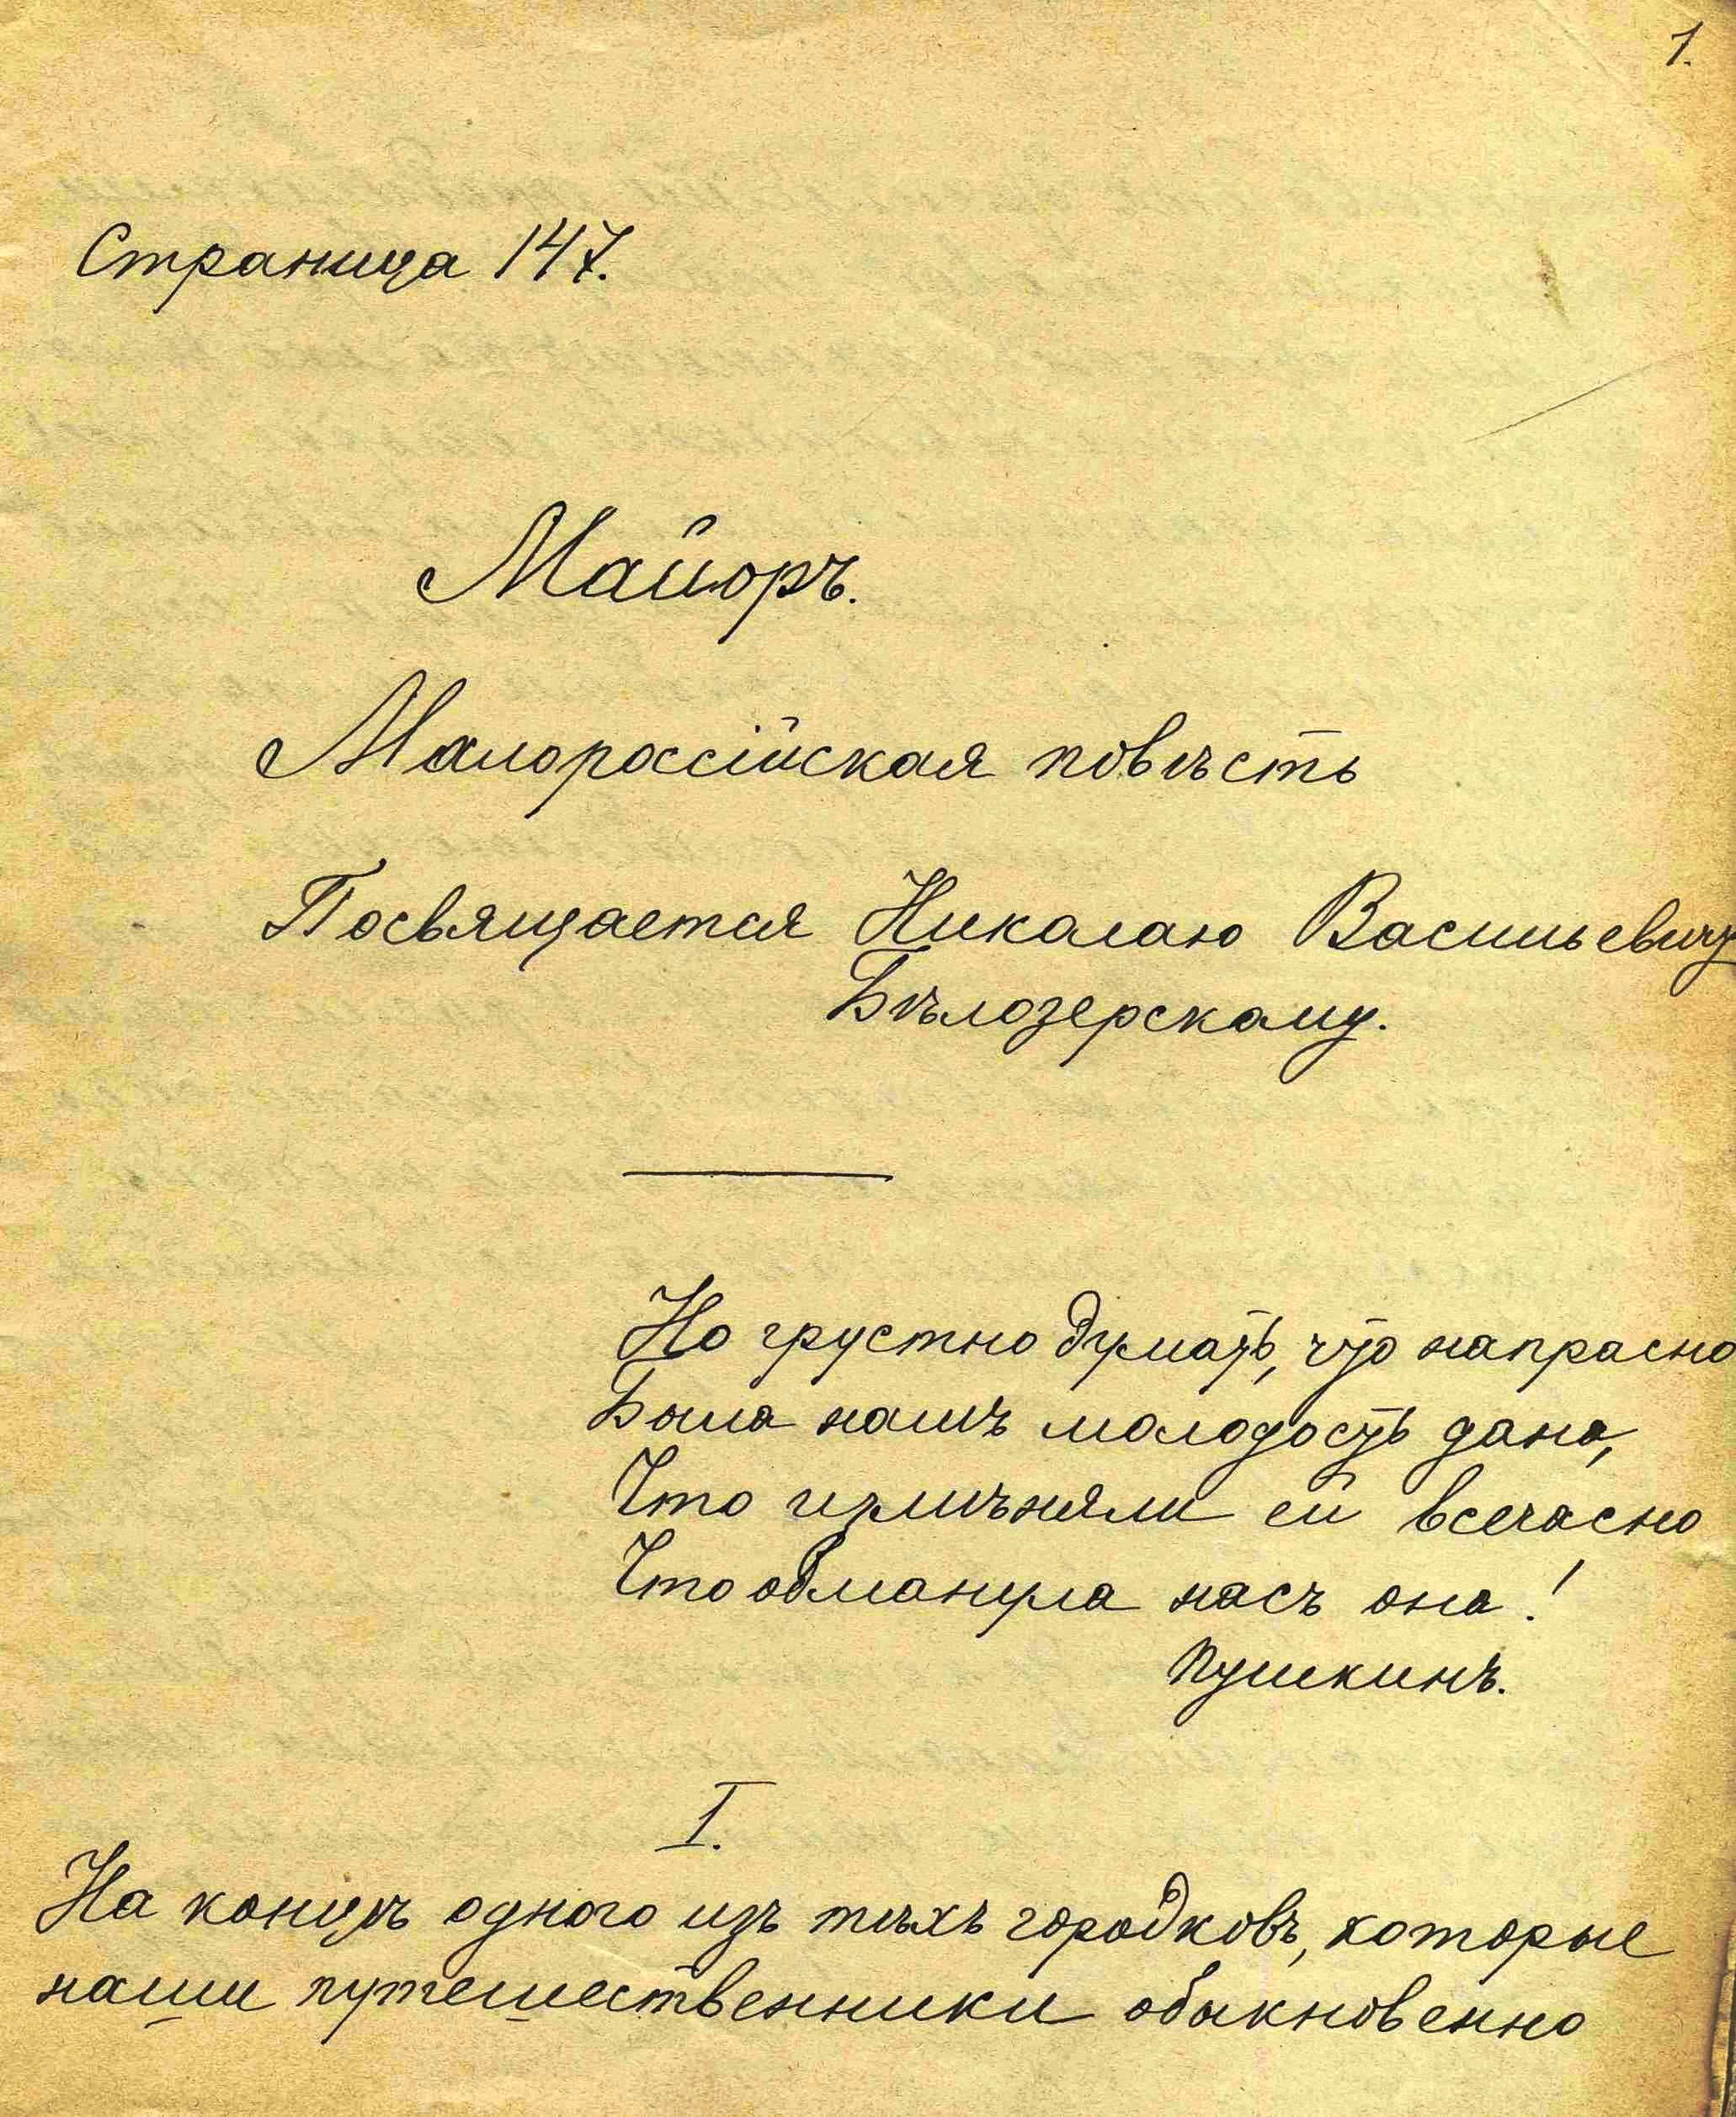 1.
Страница 147.
Майоръ.
Малороссійская повѣсть
Посвящается Николаю Васильевичу
Бѣлозерскому.
Но грустно думать, что напрасно
Была намъ молодость дана,
Что измѣняли ей всечасно
Что обманула насъ она!
Пушкинъ.
I.
На концѣ одного изъ тѣхъ городковъ, которые
наши путешественники обыкновенно